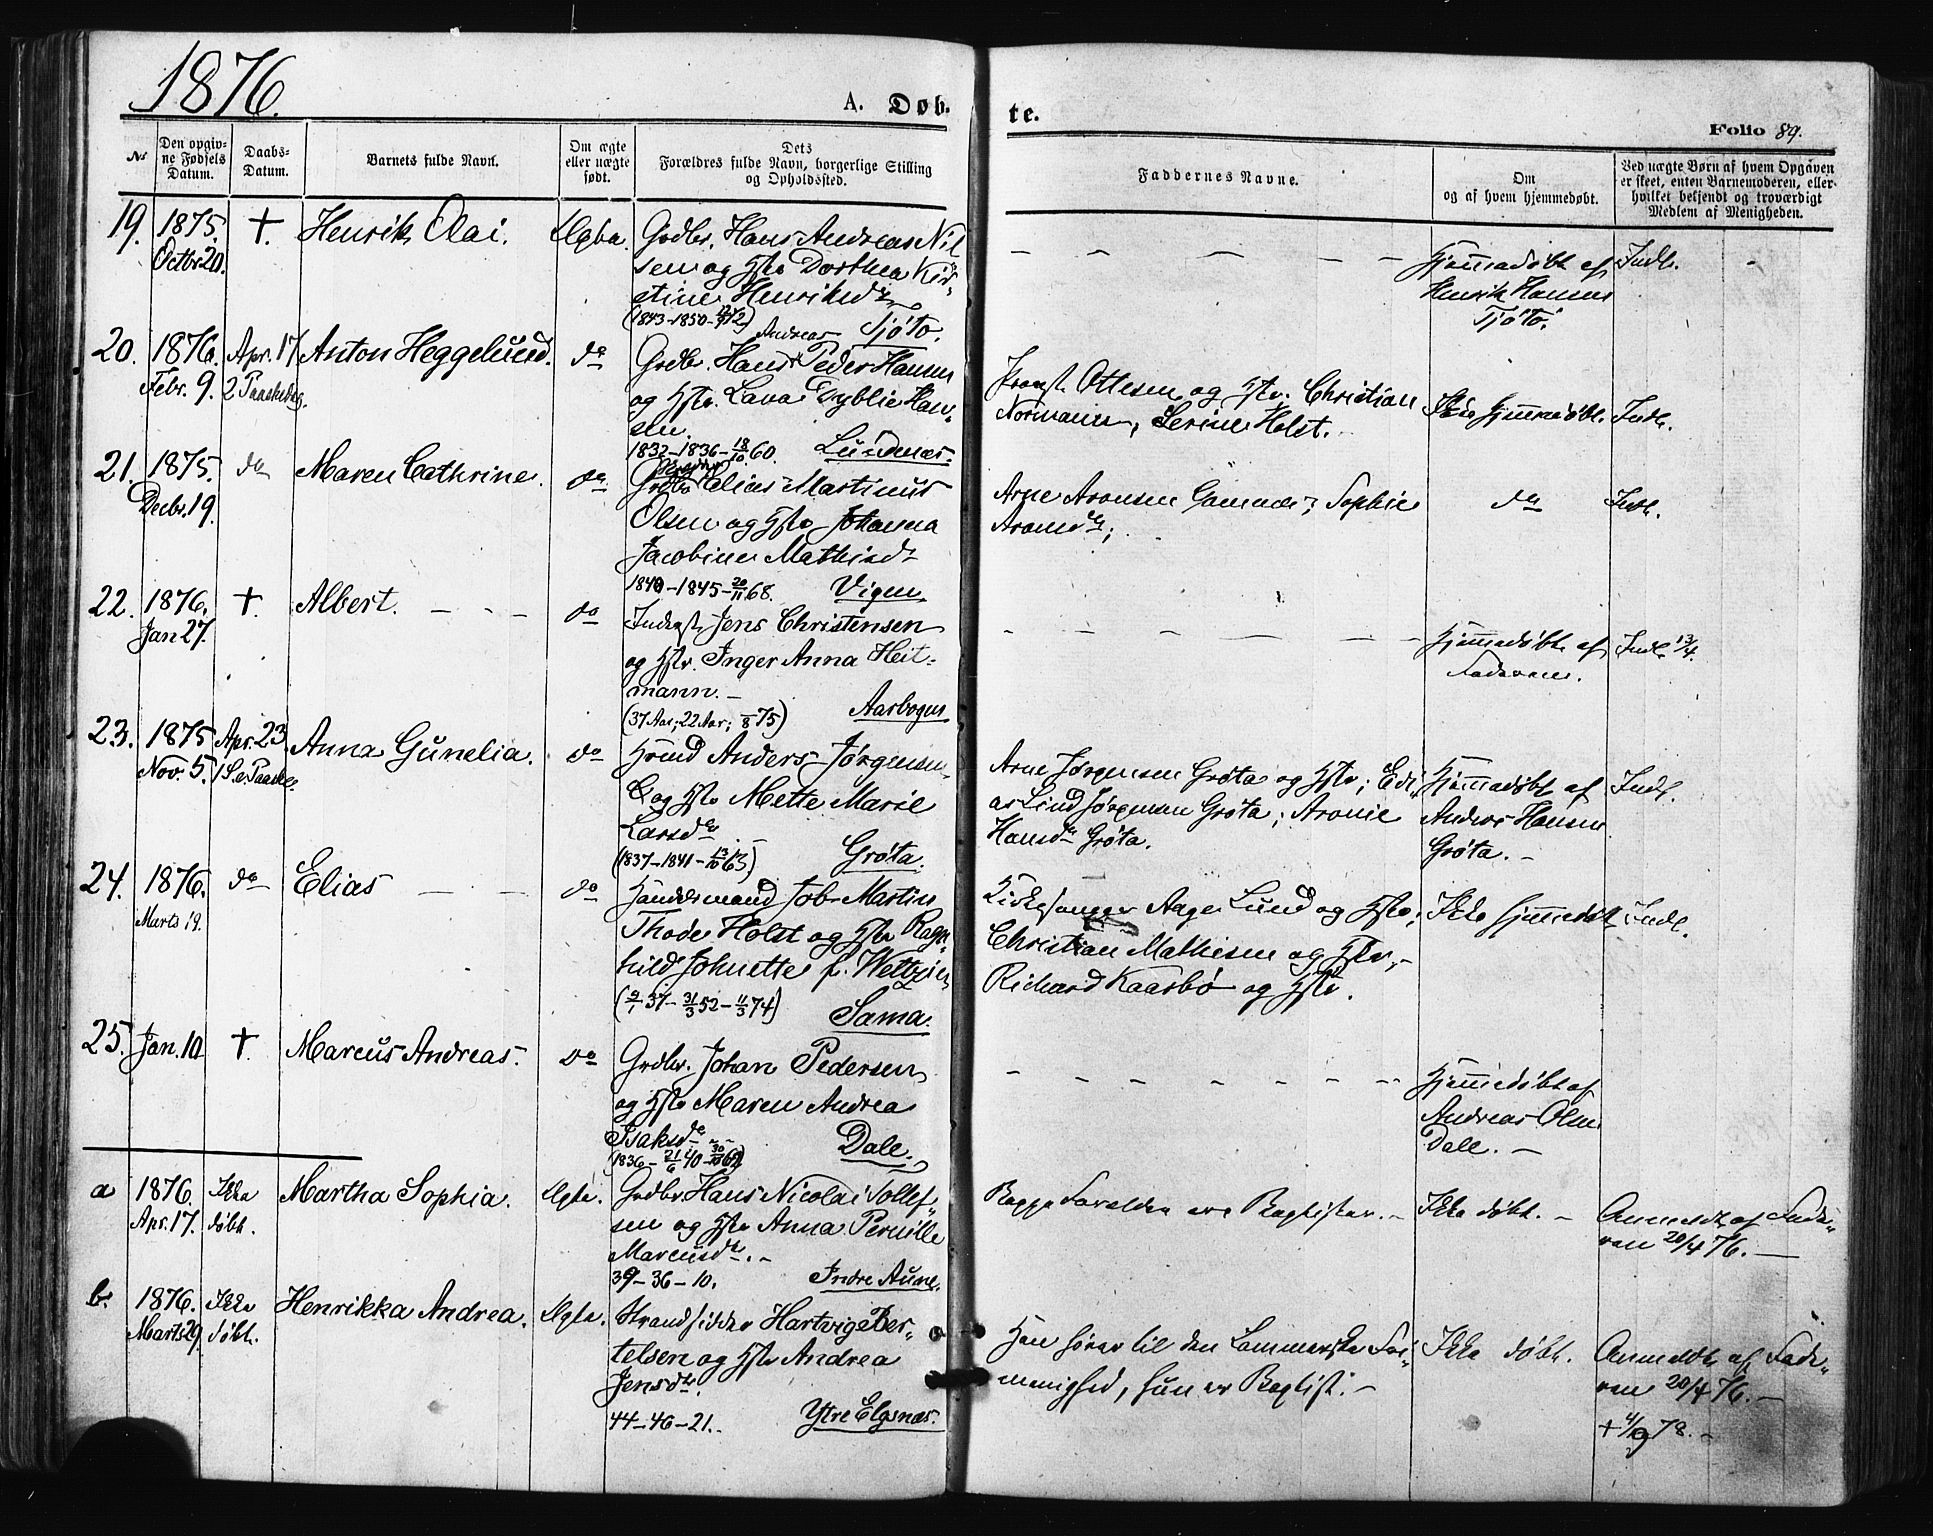 1876.
A. Døb-
te.
Folio 89.
No
Den opgiv-
ne Fødsels
Datum.
Daabs-
Datum.
Barnets fulde Navn.
Om ægte
eller uægte
født.
Dets
Forældres fulde Navn, borgerlige Stilling
og Opholdssted.
Faddernes Navne.
Om
og af hvem hjemmedøbt.
Ved uægte Børn af hvem Opgaven
er skeet, enten Barnemoderen, eller
hvilket bekjendt og troværdigt
Medlem af Menigheden.
19. 1875. Octbr 20. † Henrik Olai.
Grdbr. Hans Andreas Nil
sen og Hstr Dorthea Kir-
stine Henriksdr
(1843-1850- 72)
Tjøtø.
- - - - - - -
Hjemmedøbt af
Henrik Hansen
Tjøtø.
Indl.
20. 1876. Febr. 9. Apr. 17 2 Paaskedag. Anton Heggelund. do
Andreas
Grdbr. Hans Peder Hansen
og Hstr. Lava Dyblie Han-
sen.
1832-1836-18/10 60. Lundenæs.
Provst Ottesen og Hstr. Christian
Normann, Serine Holst.
Ikke hjemmedøbt. Indl.
21. 1875. Decbr. 19. do Maren Cathrine. do
Grdbr Elias Martinus
Olsen og Hstr Johanna
Jacobine Mathisdr
1840-1845-20/11 68. Vigen
Arne Aronsen ; Sophie
Aronsdtr;
do Indl.
22. 1876. Jan 27. † Albert. - - - do
Inderst Jens Christensen
og Hstr. Inger Anna Heit-
mann. -
(37 Aar; 22 Aar; -/8 75) Aarbogen
- - - - - - -
Hjemmedøbt af
Faderen.
Indl. 13/4.
23. 1875 Nov. 5. Apr. 23 1 S. e. Paaske. Anna Gunelia. do
Hmd Anders Jørgensen
og Hstr Mette Marie
Larsdtr
(1837-1841-13/10 63) Grøta.
Arne Jørgensen Grøta og Hstr; Edi-
as Lind Jørgensen Grøta; Aronie
Hansdtr Grøta.
Hjemmedøbt af
Anders Hansen
Grøta. -
Indl.
24. 1876. Marts 19. do Elias - - do
Handelsmand Job Martin
Thode Holst og Hstr Ragn-
hild Johnette f. Wettzien
(9/7 37-31/3 52-11/5 74) Sama.
Kirkesanger Aage Lund og Hstr;
Christian Mathisen og Hstr;-
Richard Kaarbø og Hstr.
Ikke hjemmedøbt Indl.
25. Jan. 10 † Marcus Andreas. do
Grdbr. Johan Pedersen
og Hstr Maren Andrea
Isaksdtr
(1836-21/6 40-30/10 62) Dale.
- - - - - - -
Hjemmedøbt af
Andreas Olsen
Dale. -
a 1876. Apr. 17. Ikke døbt. Martha Sophia. Ægte.
Grdbr. Hans Nicolai Tollef-
sen og Hstr Anna Pernille
Marcusdtr. -
39-36-10. Indre Aune.
Begge Forældre ere Baptister. -
Ikke døbt. -
Anmeldt af Fade-
ren 20/4 76. -
b. 1876. Marts 29. Ikke døbt. Henrikka Andrea. Ægte.
Strandsidder Hartvig Ber-
telsen og Hstr Andrea
Jensdtr.
44-46-21. Ytre Elgsnæs.
Han hører til den Lammerske Fri-
menighed, hun er Baptist. -
Ikke døbt.
Anmeldt af Fade-
ren 20/4 76. -
† 4/9 78. -